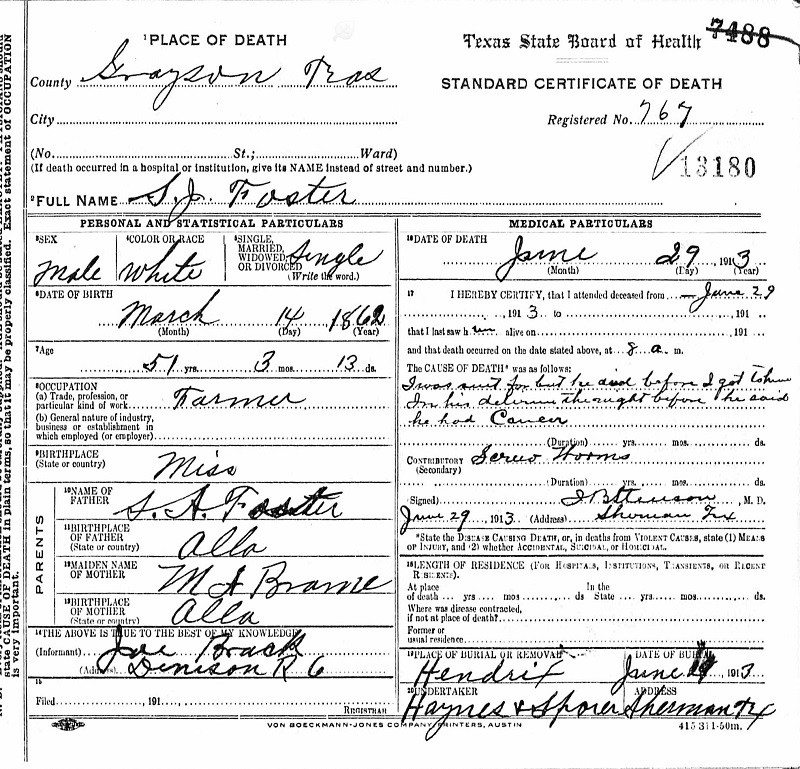 ¹PLACE OF DEATH
Texas State Board of Health
7488
County Grayson Texas
STANDARD CERTIFICATE OF DEATH
City
Registered No. 767
(No. St.; Ward)
(If death occurred in a hospital or institution, give its NAME instead of street and number.)
13180
²FULL NAME S. J. Foster
PERSONAL AND STATISTICAL PARTICULARS
³SEX Male
⁴COLOR OR RACE White
⁵SINGLE, MARRIED, WIDOWED OR DIVORCED Single
(Write the word.)
⁶DATE OF BIRTH
March 14 1862
(Month) (Day) (Year)
⁷Age
51 yrs. 3 mos. 13 ds.
⁸OCCUPATION
(a) Trade, profession, or
particular kind of work Farmer
(b) General nature of industry,
business or establishment in
which employed (or employer)
⁹BIRTHPLACE
(State or country) Miss
PARENTS
¹⁰NAME OF
FATHER S. A. Foster
¹¹BIRTHPLACE
OF FATHER
(State or country) Alla
¹²MAIDEN NAME
OF MOTHER M A Brame
¹³BIRTHPLACE
OF MOTHER
(State or country) Alla
¹⁴THE ABOVE IS TRUE TO THE BEST OF MY KNOWLEDGE
(Informant) Joe Brack
(Address) Denison R 6
¹⁵
Filed 191
REGISTRAR
MEDICAL PARTICULARS
¹⁶DATE OF DEATH
June 29 1913
(Month) (Day) (Year)
¹⁷ I HEREBY CERTIFY, that I attended deceased from June 29
1913 to 191
that I last saw him alive on 191
and that death occurred on the date stated above, at 8 a. m.
The CAUSE OF DEATH* was as follows:
I was sent for but he died before I got to him
In his delirium the night before he said
he had Cancer
(Duration) yrs. mos. ds.
CONTRIBUTORY Screw Worms
(Secondary)
(Duration) yrs. mos. ds.
(Signed) M. D.
June 29, 1913 (Address) Sherman Tx
*State the DISEASE CAUSING DEATH, or, in deaths from VIOLENT CAUSES, state (1) MEANS
OF INJURY, and (2) whether ACCIDENTAL, SUICIDAL, or HOMICIDAL.
¹⁸LENGTH OF RESIDENCE (FOR HOSPITALS, INSTITUTIONS, TRANSIENTS, OR RECENT
RESIDENTS).
At place In the
of death yrs. mos. ds. State yrs. mos. ds.
Where was disease contracted,
if not at place of death?
Former or
usual residence
¹⁹PLACE OF BURIAL OR REMOVAL DATE OF BURIAL
Hendrix June 1913
²⁰UNDERTAKER ADDRESS
Haynes & Sporer Sherman Tx
VON BOECKMANN-JONES COMPANY, PRINTERS, AUSTIN
415 311-50m.
state CAUSE OF DEATH in plain terms, so that it may be properly classified. Exact statement of OCCUPATION
is very important.